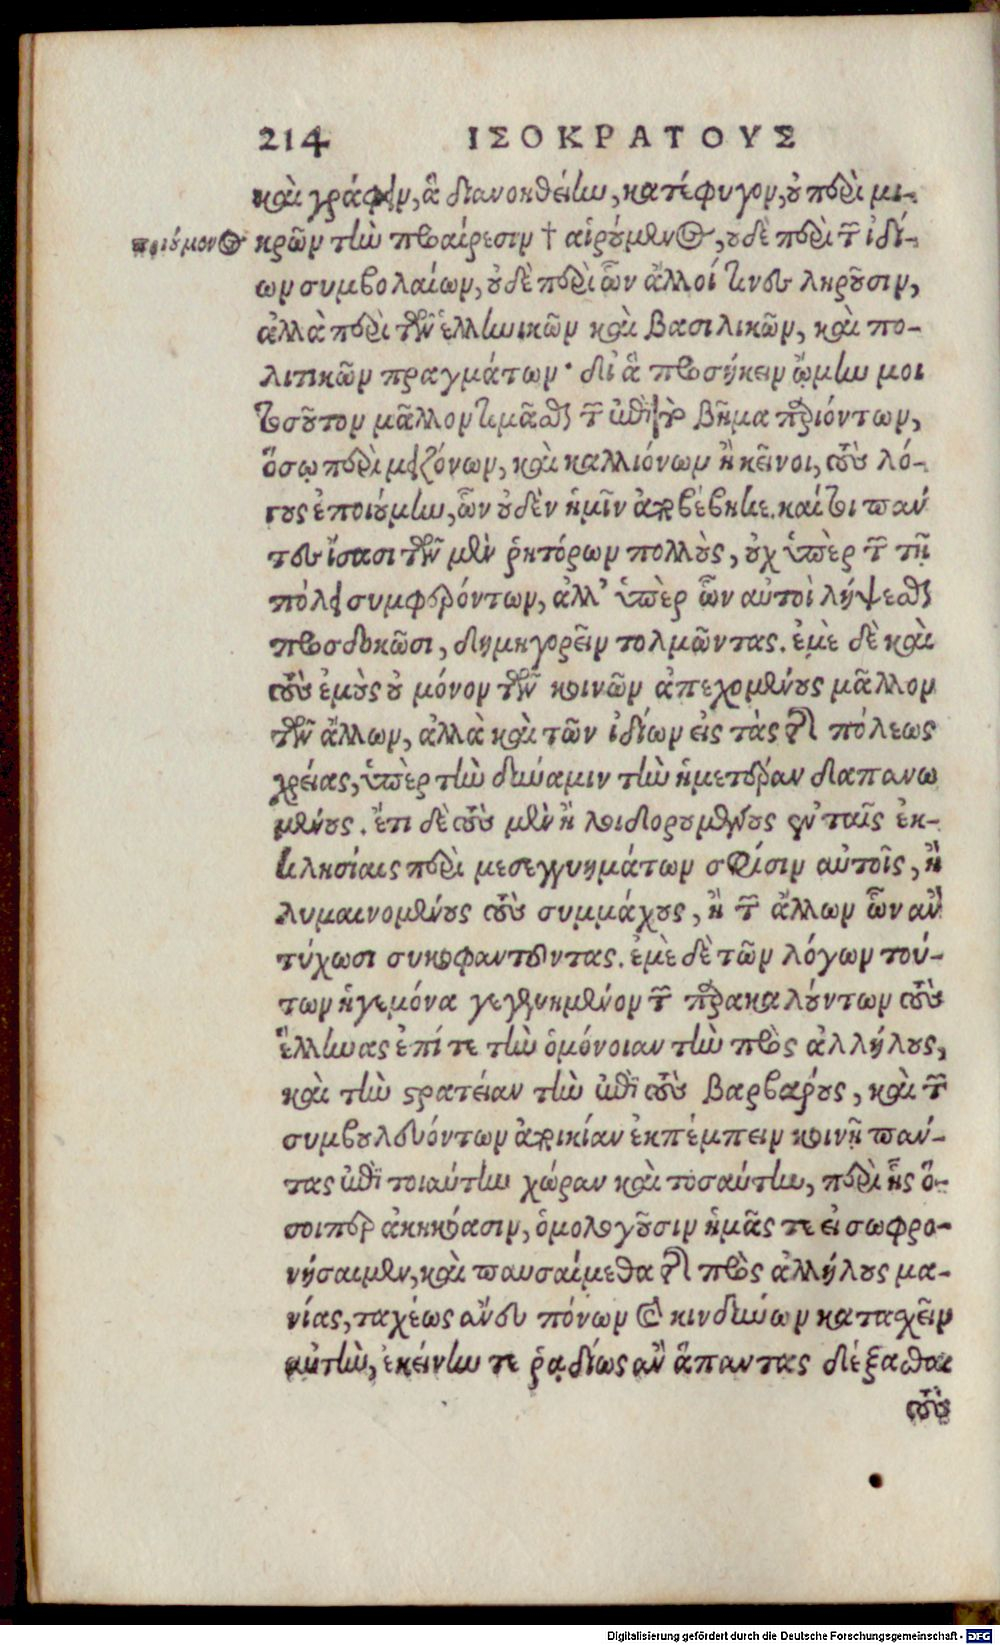 214 ΙΣΟΚΡΑΤΟΥΣ
καὶ γράφειν, ἃ διανοηθείην, κατέφυγον, οὐ περὶ μι-
ποιούμενος κρῶν τὴν προαίρεσιν † αἱρούμενος, οὐδὲ περὶ τῶν ἰδί-
ων συμβολαίων, οὐδὲ περὶ ὧν ἄλλοί τινες ληροῦσιν,
ἀλλὰ περὶ τῶν ἑλληνικῶν καὶ βασιλικῶν, καὶ πο-
λιτικῶν πραγμάτων· δι' ἃ προσήκειν ᾤμην μοι
τοσοῦτον μᾶλλον τιμᾶσθαι τῶν ἐπὶ τὸ βῆμα παριόντων,
ὅσῳ περὶ μειζόνων, καὶ καλλιόνων ἢ κεῖνοι, τοὺς λό-
γους ἐποιούμην, ὧν οὐδὲν ἡμῖν ἀποβέβηκε. καίτοι πάν
τες ἴσασι τῶν μὲν ῥητόρων πολλοὺς, οὐχ ὑπὲρ τῶν τῇ
πόλει συμφερόντων, ἀλλ' ὑπὲρ ὧν αὐτοὶ λήψεσθαι
προσδοκῶσι, δημηγορεῖν τολμῶντας. ἐμὲ δὲ καὶ
τοὺς ἐμοὺς οὐ μόνον τῶν κοινῶν ἀπεχομένους μᾶλλον
τῶν ἄλλων, ἀλλὰ καὶ τῶν ἰδίων εἰς τὰς τῆς πόλεως
χρείας, ὑπὲρ τὴν δύναμιν τὴν ἡμετέραν δαπανω
μένους. ἔτι δὲ τοὺς μὲν ἢ λοιδορουμένους ἐν ταῖς ἐκ-
κλησίαις περὶ μεσεγγυημάτων σφίσιν αὐτοῖς, ἢ
λυμαινομένους τοὺς συμμάχους, ἢ τῶν ἄλλων ὧν ἂν
τύχωσι συκοφαντοῦντας. ἐμὲ δὲ τῶν λόγων τού-
των ἡγεμόνα γεγενημένον τῶν παρακαλούντων τοὺς
ἕλληνας ἐπί τε τὴν ὁμόνοιαν τὴν πρὸς ἀλλήλους,
καὶ τὴν στρατείαν τὴν ἐπὶ τοὺς βαρβάρους, καὶ τῶν
συμβουλευόντων ἀποικίαν ἐκπέμπειν κοινῇ πάν-
τας ἐπὶ τοιαύτην χώραν καὶ τοσαύτην, περὶ ἧς ὅ-
σοιπερ ἀκηκόασιν, ὁμολογοῦσιν ἡμᾶς τε εἰ σωφρο-
νήσαιμεν, καὶ παυσαίμεθα τῆς πρὸς ἀλλήλους μα-
νίας, ταχέως ἄνευ πόνων καὶ κινδύνων κατασχεῖν
αὐτὴν, ἐκείνην τε ῥᾳδίως ἂν ἅπαντας δέξασθαι
τοὺς
Digitalisierung gefördert durch die Deutsche Forschungsgemeinschaft - DFG